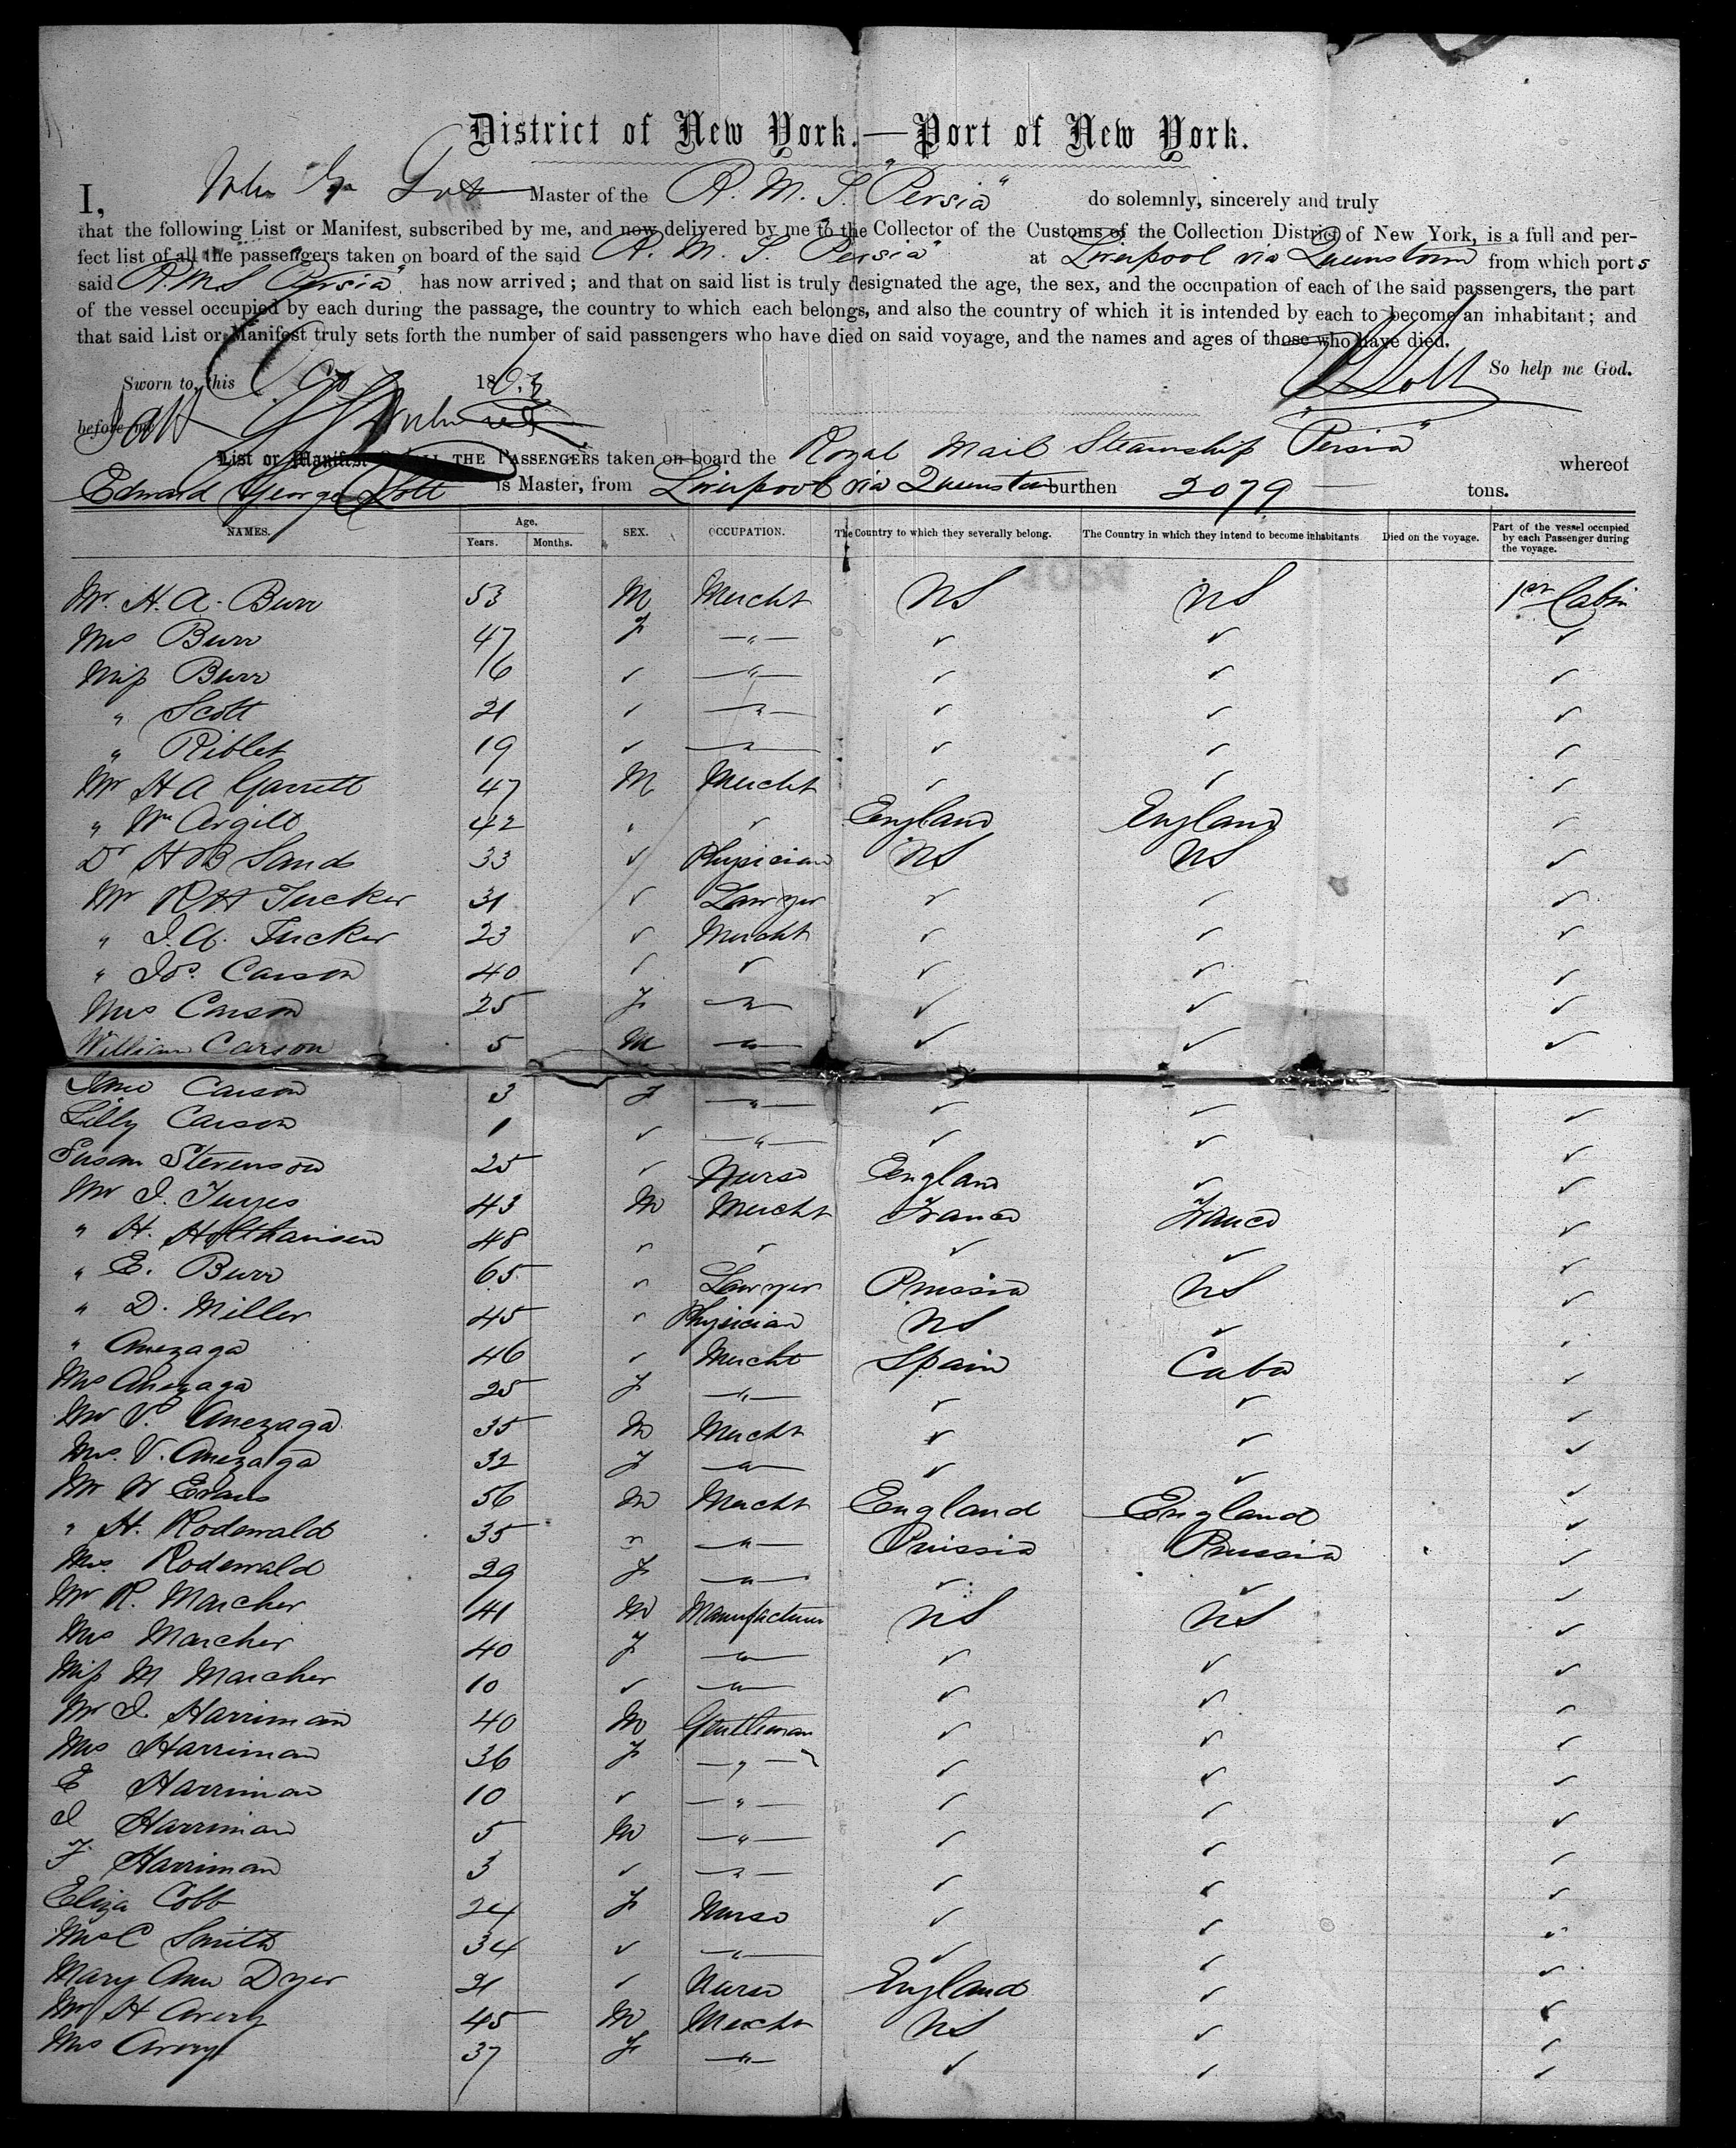 District of New York.—Port of New York.
I, Master of the R. M. S. "Persia" do solemnly, sincerely and truly
that the following List or Manifest, subscribed by me, and now delivered by me to the Collector of the Customs of the Collection District of New York, is a full and per-
fect list of all the passengers taken on board of the said R. M. S. "Persia" at Liverpool via Queenstown from which port s
said R.M.S "Persia" has now arrived; and that on said list is truly designated the age, the sex, and the occupation of each of the said passengers, the part
of the vessel occupied by each during the passage, the country to which each belongs, and also the country of which it is intended by each to become an inhabitant; and
that said List or Manifest truly sets forth the number of said passengers who have died on said voyage, and the names and ages of those who have died.
So help me God.
Sworn to, this 1863
before me
List or Manifest OF ALL THE PASSENGERS taken on board the Royal Mail Steamship "Persia" whereof
Edward George Lott is Master, from Liverpool via Queenston burthen 2079 tons.
NAMES. Age. Years. Months. SEX. OCCUPATION. The Country to which they severally belong. The Country in which they intend to become inhabitants Died on the voyage. Part of the vessel occupied by each Passenger during the voyage.
Mr. H. A. Burr 53 M Mercht US US 1st Cabin
Mrs Burr 47 F —"— ✓ ✓ ✓
Miss Burr 16 ✓ —"— ✓ ✓ ✓
" Scott 21 ✓ —"— ✓ ✓ ✓
" Riblet 19 ✓ —"— ✓ ✓ ✓
Mr H A Garrett 47 M Mercht ✓ ✓ ✓
" Wm Argill 42 " ✓ England England ✓
Dr H B Sands 33 ✓ Physician US US ✓
Mr R H Tucker 31 ✓ Lawyer ✓ ✓ ✓
" J. A. Tucker 23 ✓ Mercht ✓ ✓ ✓
" Jos. Carson 40 ✓ ✓ ✓ ✓ ✓
Mrs Carson 25 F —"— ✓ ✓ ✓
William Carson 5 M —"— ✓ ✓ ✓
Jane Carson 3 F —"— ✓ ✓ ✓
Lilly Carson 1 ✓ —"— ✓ ✓ ✓
Susan Stevenson 25 ✓ Nurse England ✓ ✓
Mr J. 43 M Mercht France France ✓
" H. Holthausen 48 ✓ ✓ ✓ ✓ ✓
" E. Burr 65 ✓ Lawyer Prussia US ✓
" D. Miller 45 ✓ Physician US ✓ ✓
" Amezaga 46 ✓ Mercht Spain Cuba ✓
Mrs Amezaga 25 F —"— ✓ ✓ ✓
Mr V. Amezaga 35 M Mercht ✓ ✓ ✓
Mrs. V. Amezaga 32 F —"— ✓ ✓ ✓
Mr W Evans 56 M Mercht England England ✓
" H. Rodewald 35 " —"— Prussia Prussia ✓
Mrs. Rodewald 29 F —"— ✓ ✓ ✓
Mr R. Marcher 41 M Manufacturer US US ✓
Mrs Marcher 40 F —"— ✓ ✓ ✓
Miss M Marcher 10 ✓ —"— ✓ ✓ ✓
Mr J. Harriman 40 M Gentleman ✓ ✓ ✓
Mrs Harriman 36 F —"— ✓ ✓ ✓
E Harriman 10 ✓ —"— ✓ ✓ ✓
J Harriman 5 M —"— ✓ ✓ ✓
F. Harriman 3 ✓ —"— ✓ ✓ ✓
Eliza Cobb 24 F Nurse ✓ ✓ ✓
Mrs C Smith 34 ✓ —"— ✓ ✓ ✓
Mary Ann Dyer 21 ✓ Nurse England ✓ ✓
Mr H Avery 45 M Mercht US ✓ ✓
Mrs Avery 37 F —"— ✓ ✓ ✓